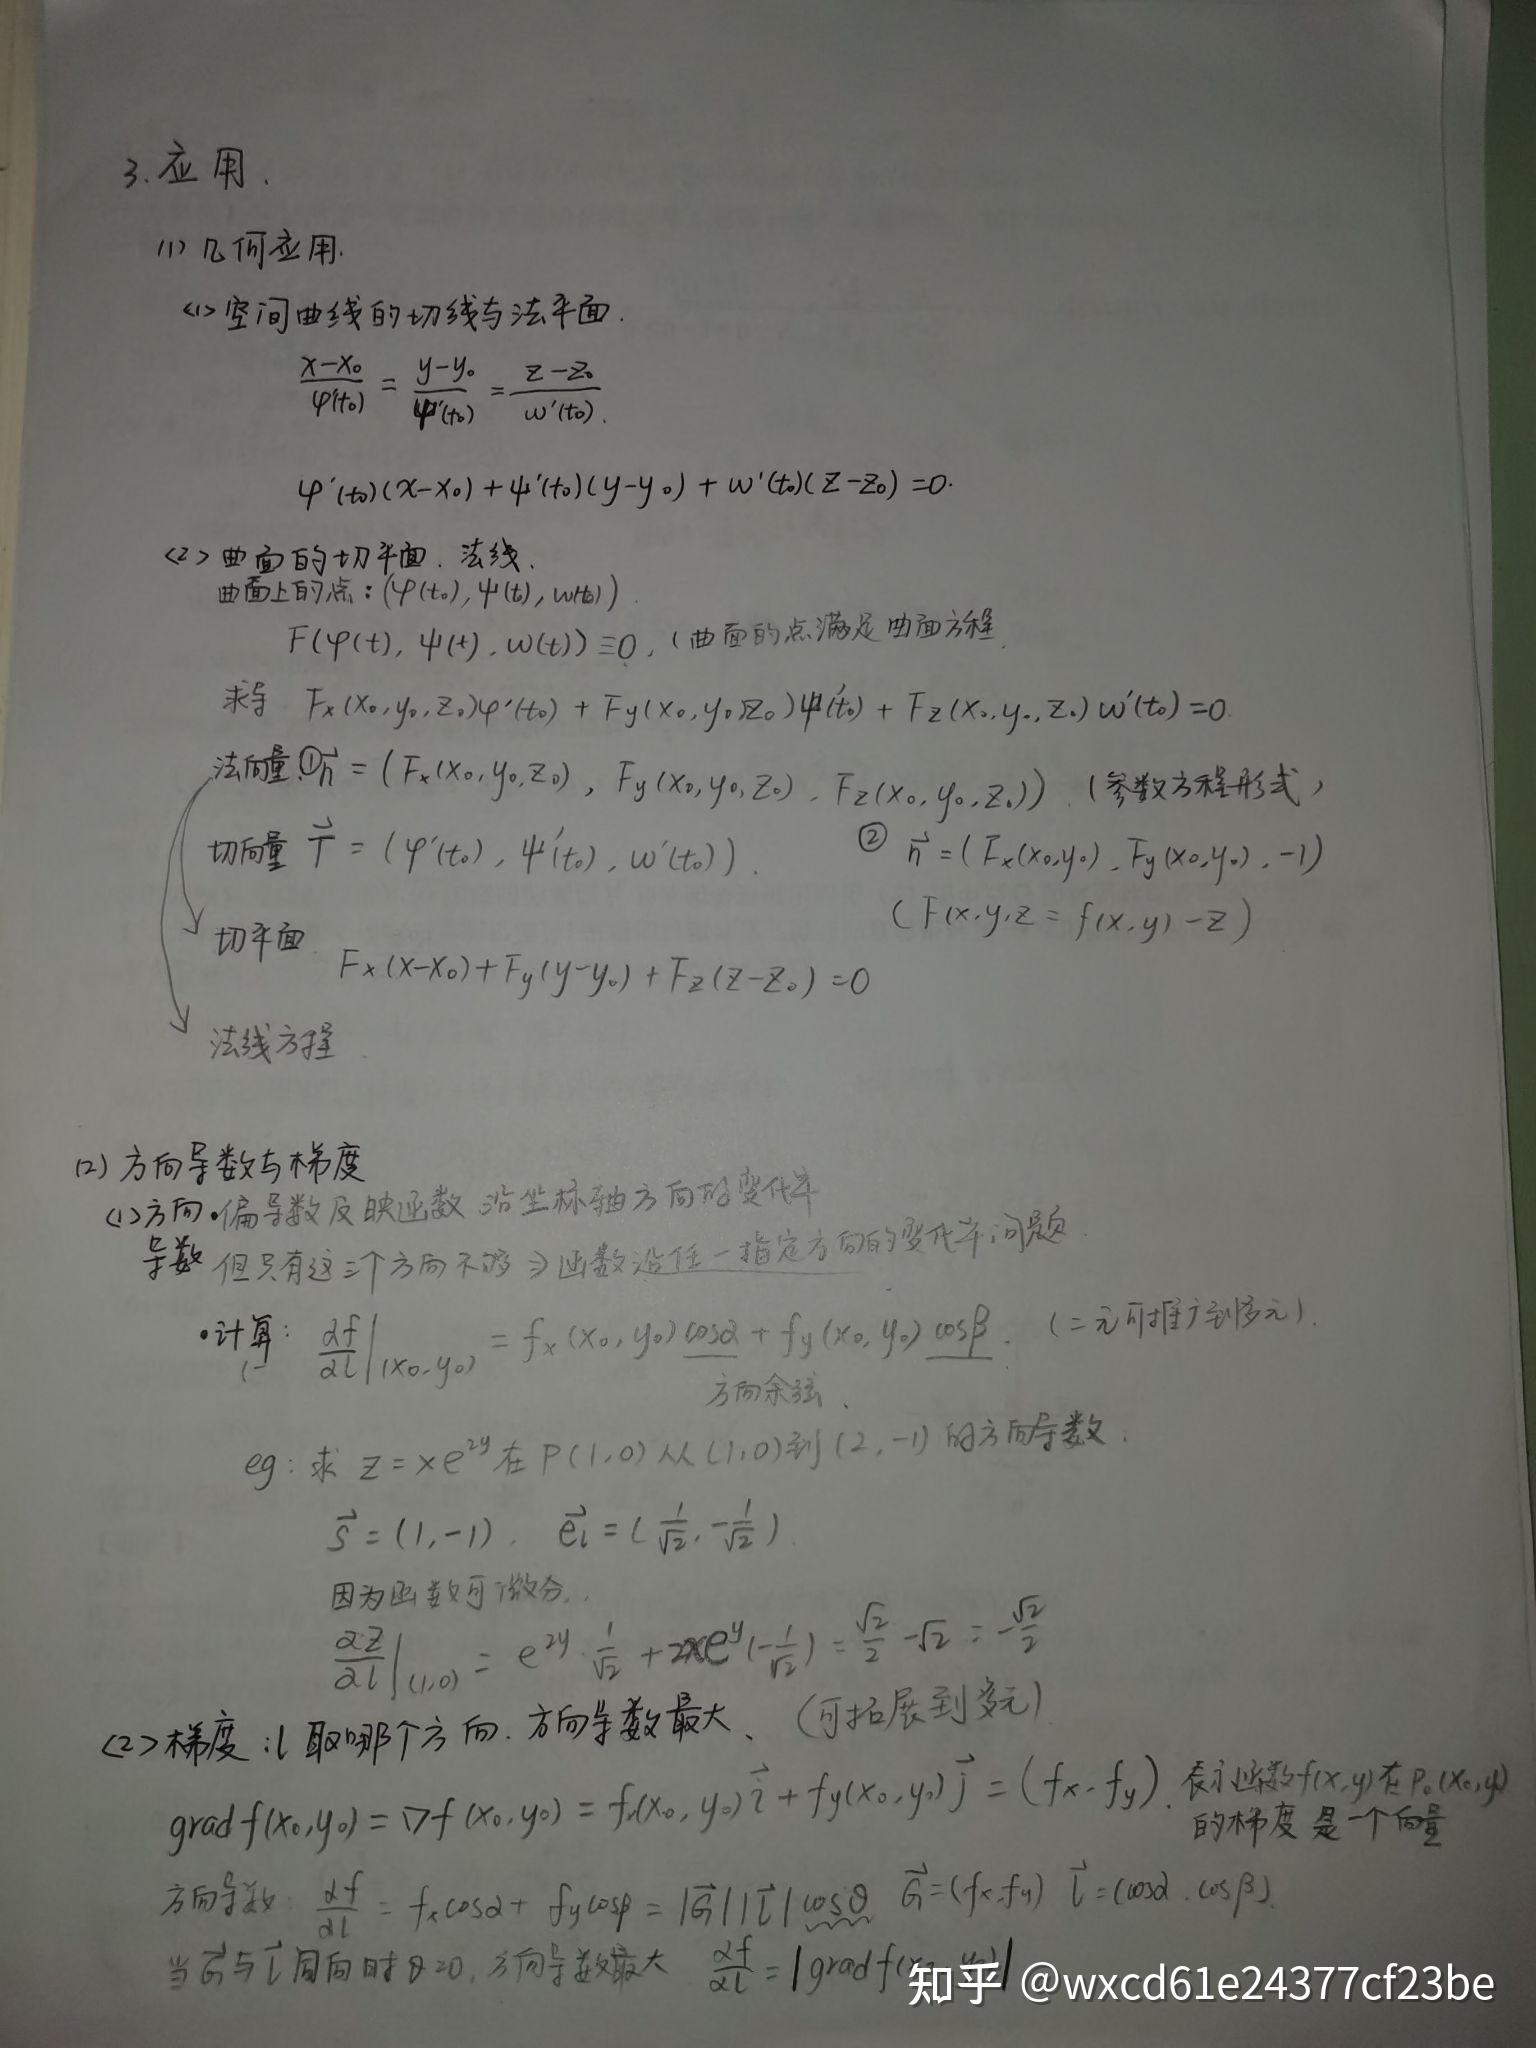 3. 应用.
(1) 几何应用.
<1> 空间曲线的切线与法平面.
(x-x₀)/φ'(t₀) = (y-y₀)/ψ'(t₀) = (z-z₀)/ω'(t₀).
φ'(t₀)(x-x₀)+ψ'(t₀)(y-y₀)+ω'(t₀)(z-z₀)=0.
<2> 曲面的切平面.法线.
曲面上的点:(φ(t₀),ψ(t),ω(t₀))
F(φ(t),ψ(t),ω(t))≡0,(曲面的点满足曲面方程
求导 Fx(x₀,y₀,z₀)φ'(t₀)+Fy(x₀,y₀,z₀)ψ'(t₀)+Fz(x₀,y₀,z₀)ω'(t₀)=0
法向量 ①n⃗=(Fx(x₀,y₀,z₀),Fy(x₀,y₀,z₀),Fz(x₀,y₀,z₀)).(参数方程形式)
切向量 T⃗=(φ'(t₀),ψ'(t₀),ω'(t₀)). ② n⃗=(Fx(x₀,y₀),Fy(x₀,y₀),-1)
(F(x,y,z=f(x,y)-z)
切平面
Fx(x-x₀)+Fy(y-y₀)+Fz(z-z₀)=0
法线方程
(2) 方向导数与梯度
<1>方向 •偏导数反映函数 沿坐标轴方向的变化率
导数 但只有这三个方向不够⇒函数沿任一指定方向的变化率问题
•计算: ∂f/∂l|(x₀,y₀) = fx(x₀,y₀)cosα+fy(x₀,y₀)cosβ. (二元可推广到多元).
方向余弦.
eg:求 z=xe^{2y}在P(1,0)从(1,0)到(2,-1)的方向导数.
s⃗=(1,-1). e⃗l=(1/√2,-1/√2).
因为函数可微分..
∂z/∂l|(1,0) = e^{2y}·1/√2+2xe^{y}(-1/√2)=√2/2-√2=-√2/2
<2>梯度:l取哪个方向.方向导数最大、(可拓展到多元)
grad f(x₀,y₀)=▽f(x₀,y₀)=fx(x₀,y₀)i⃗+fy(x₀,y₀)j⃗=(fx,fy). 表示函数f(x,y)在P₀(x₀,y₀)
的梯度是一个向量
方向导数: ∂f/∂l=fxcosα+fycosβ=|G⃗||l⃗|cosθ G⃗=(fx,fy) l⃗=(cosα,cosβ).
当G⃗与l⃗同向时θ=0,方向导数最大 ∂f/∂l=|grad f(x₀,y₀)|
知乎 @wxcd61e24377cf23be